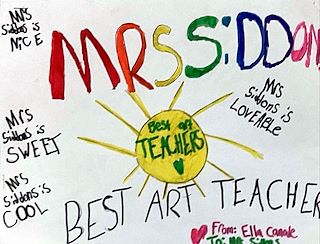 Mrs
Siddons is
NiCE
MRS SiDDON
Mrs
Siddons is
LOVEABLE
Best art
TEACHERS
Mrs
Siddons is
SWEET
Mrs
Siddons is
COOL
BEST ART TEACHER
From: Ella
To: Mrs